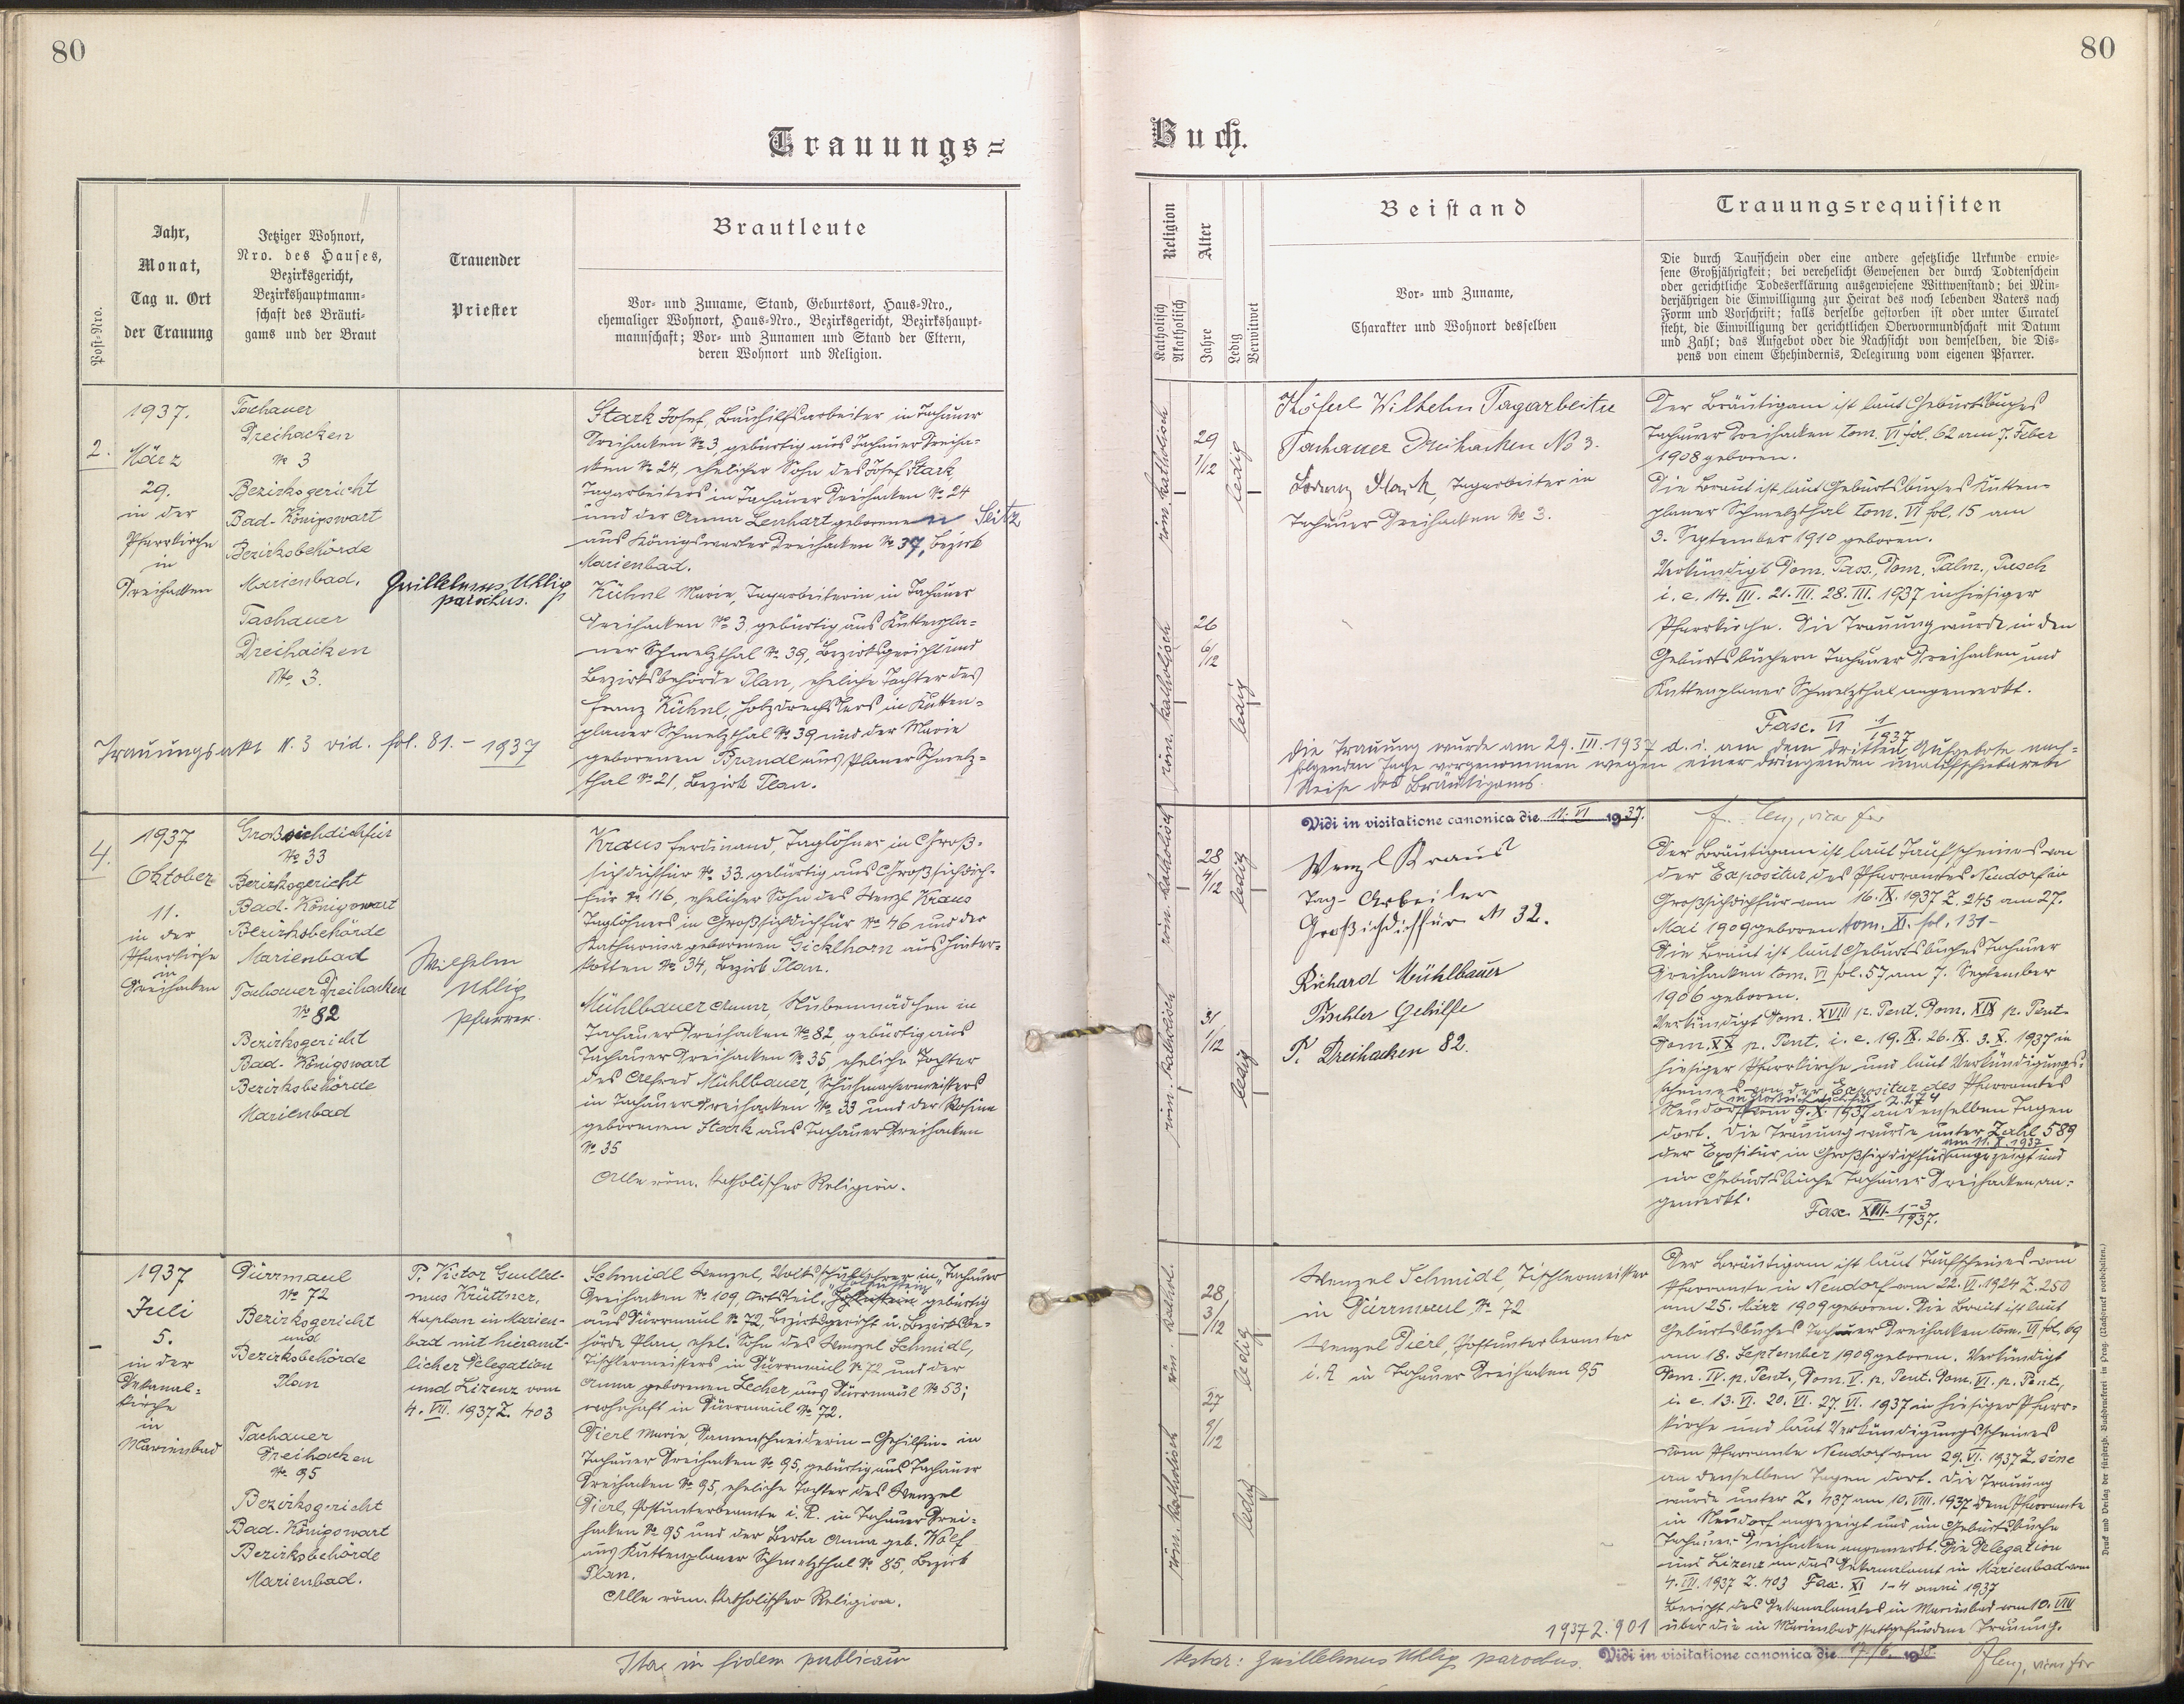 80
80
Trauungs=
Buch.
Post-Nro.
Jahr,
Monat,
Tag u. Ort
der Trauung
Jetziger Wohnort,
Nro. des Hauses,
Bezirksgericht,
Bezirkshauptmann-
schaft des Bräuti-
gams und der Braut
Trauender
Priester
Brautleute
Vor- und Zuname, Stand, Geburtsort, Haus-Nro.,
ehemaliger Wohnort, Haus-Nro., Bezirksgericht, Bezirkshaupt-
mannschaft; Vor- und Zunamen und Stand der Eltern,
deren Wohnort und Religion.
Religion
Katholisch
Akatholisch
Alter
Jahre
Ledig
Verwitwet
Beistand
Vor- und Zuname,
Charakter und Wohnort desselben
Trauungsrequisiten
Die durch Taufschein oder eine andere gesetzliche Urkunde erwie-
sene Großjährigkeit; bei verehelicht Gewesenen der durch Todtenschein
oder gerichtliche Todeserklärung ausgewiesene Wittwenstand; bei Min-
derjährigen die Einwilligung zur Heirat des noch lebenden Vaters nach
Form und Vorschrift; falls derselbe gestorben ist oder unter Curatel
steht, die Einwilligung der gerichtlichen Obervormundschaft mit Datum
und Zahl; das Aufgebot oder die Nachsicht von demselben, die Dis-
pens von einem Ehehindernis, Delegirung vom eigenen Pfarrer.
2.
1937.
März
29.
in der
Pfarrkirche
in
Dreihacken
Tachauer
Dreihacken
№ 3
Bezirksgericht
Bad-Königswart
Bezirksbehörde
Marienbad.
Tachauer
Dreihacken
No. 3.
Guillelmus Uhlig
parochus.
Stark Josef, Bauhilfsarbeiter in Tachauer
Dreihacken № 3, gebürtig aus Tachauer Dreiha-
cken № 24, ehelicher Sohn des Josef Stark,
Tagarbeiters in Tachauer Dreihacken № 24
und der Anna Lenhart geborenen Seitz
aus Königswarter Dreihacken № 37, Bezirk
Marienbad.
Kühnl Marie, Tagarbeiterin in Tachauer
Dreihacken № 3, gebürtig aus Kuttenpla-
ner Schmelzthal № 39, Bezirksgericht und
Bezirksbehörde Plan, eheliche Tochter des
Franz Kühnl, Holzdrechslers in Kutten-
planer Schmelzthal № 39 und der Marie
geborenen Brandl aus Planer Schmelz-
thal № 21, Bezirk Plan.
Trauungsakt N. 3 vid. fol. 81. - 1937
röm. katholisch
29
1/12
ledig
röm. katholisch
26
6/12
ledig
Wilhelm Tagarbeiter
Tachauer Dreihacken No 3.
Stark, Tagarbeiter in
Tachauer Dreihacken № 3.
Der Bräutigam ist laut Geburtsbuches
Tachauer Dreihacken tom. VI fol. 62 am 7. Feber
1908 geboren.
Die Braut ist laut Geburtsbuches Kutten-
planer Schmelzthal tom. VI fol. 15 am
3. September 1910 geboren.
Verkündigt Dom. Pass., Dom. Palm., Pasch
i. e. 14. III. 21. III. 28. III. 1937 in hiesiger
Pfarrkirche. Die Trauung wurde in den
Geburtsbüchern Tachauer Dreihacken und
Kuttenplaner Schmelzthal angemerkt.
Fasc. VI 1/1937
Die Trauung wurde am 29. III. 1937 d. i. am dem dritten Aufgebote nach-
folgenden Tage vorgenommen wegen einer dringenden unaufschiebbaren
Reise des Bräutigams.
Vidi in visitatione canonica die 11. VI 1937.
4.
1937
Oktober
11.
in der
Pfarrkirche
in
Dreihacken
Großsichdichfür
№ 33
Bezirksgericht
Bad-Königswart
Bezirksbehörde
Marienbad
Tachauer Dreihacken
№ 82
Bezirksgericht
Bad-Königswart
Bezirksbehörde
Marienbad
Wilhelm
Uhlig
Pfarrer.
Kraus Ferdinand, Taglöhner in Groß-
sichdichfür № 33. gebürtig aus Großsichdich-
für № 116, ehelicher Sohn des Wenzl Kraus
Taglöhners in Großsichdichfür № 46 und der
Katharina geborenen Gicklhorn aus Hinter-
kotten № 34, Bezirk Plan.
Mühlbauer Anna, Stubenmädchen in
Tachauer Dreihacken № 82, gebürtig aus
Tachauer Dreihacken № 35, eheliche Tochter
des Alfred Mühlbauer, Schuhmachermeisters
in Tachauer Dreihacken № 33 und der Rosina
geborenen Stark aus Tachauer Dreihacken
№ 35
Alle röm. katholischer Religion.
röm. katholisch
28
4/12
ledig
röm. katholisch
31
1/12
ledig
Wenzl Kraus
Tag-Arbeiter
Großsichdichfür N 32.
Richard Mühlbauer
Tischler Gehilfe
T. Dreihacken 82.
Der Bräutigam ist laut Taufscheines von
der Expositur des Pfarramtes Neudorf in
Großsichdichfür vom 16. IX. 1937 Z. 245 am 27.
Mai 1909 geboren tom. XI. fol. 131-
Die Braut ist laut Geburtsbuches Tachauer
Dreihacken tom. VI fol. 57 am 7. September
1906 geboren.
Verkündigt Dom. XVIII p. Pent. Dom. XIX p. Pent.
Dom. XX p. Pent. i. e. 19. IX. 26. IX. 3. X. 1937 in
hiesiger Pfarrkirche und laut Verkündigungs-
scheines von der Expositur des Pfarramtes
in Großsichdichfür Z. 274
Neudorf vom 9. X. 1937 an denselben Tagen
dort. Die Trauung wurde unter Zahl 589
am 11. X. 1937
der Expositur in Großsichdichfür angezeigt und
im Geburtsbuche Tachauer Dreihacken an-
gemerkt.
Fasc. XIII. 1-3/1937.
1937
Juli
5.
in der
Dekanal-
kirche
in
Marienbad
Dürrmaul
№ 72
Bezirksgericht
und
Bezirksbehörde
Plan
Tachauer
Dreihacken
№ 95
Bezirksgericht
Bad-Königswart
Bezirksbehörde
Marienbad.
P. Victor Guillel-
mus Krüttner,
Kaplan in Marien-
bad mit hieramt-
licher Delegation
und Lizenz vom
4. VII. 1937 Z. 403
Schmidl Wenzel, Volksschullehrer in Tachauer
Dreihacken № 109, Ortsteil gebürtig
aus Dürrmaul № 72, Bezirksgericht u. Bezirksbe-
hörde Plan, ehel. Sohn des Wenzel Schmidl,
Tischlermeisters in Dürrmaul № 72 und der
Anna geborenen Lecher aus Dürrmaul № 53;
wohnhaft in Dürrmaul № 72.
Dierl Marie, Damenschneiderin-Gehilfin- in
Tachauer Dreihacken № 95, gebürtig aus Tachauer
Dreihacken № 95, eheliche Tochter des Wenzel
Dierl, Postunterbeamte i. R. in Tachauer Drei-
hacken № 95 und der Berta Anna geb. Wolf
aus Kuttenplaner Schmelzthal № 85, Bezirk
Plan.
Alle röm. katholischer Religion.
röm. kathol.
28
3/12
ledig
röm. katholisch
27
9/12
ledig
Wenzel Schmidl, Tischlermeister
in Dürrmaul, № 72
Wenzel Dierl, Postunterbeamter
i. R in Tachauer Dreihacken 95
Der Bräutigam ist laut Taufscheines vom
Pfarramte in Neudorf vom 22. VI. 1924 Z. 250
am 25. März 1909 geboren. Die Braut ist laut
Geburtsbuches Tachauer Dreihacken tom. VI fol. 69
am 18. September 1909 geboren. Verkündigt
Dom. IV. p. Pent., Dom. V. p. Pent. Dom. VI. p. Pent.,
i. e. 13. VI. 20. VI. 27. VI. 1937 in hiesiger Pfarr-
kirche und laut Verkündigungsscheines
vom Pfarramte Neudorf vom 29. VI. 1937 Z. sine
an denselben Tagen dort. Die Trauung
wurde unter Z. 437 am 10. VIII. 1937 dem Pfarramte
in Neudorf angezeigt und im Geburtsbuche
Tachauer Dreihacken angemerkt. Die Delegation
und Lizenz an das Dekanalamt in Marienbad vom
4. VII. 1937 Z. 403 Fasc. XI 1-4 anni 1937
Bericht des Dekanalamtes in Marienbad vom 10. VIII
1937 Z. 901 über die in Marienbad stattgefundene Trauung.
Druck und Verlag der fürsterzb. Buchdruckerei in Prag. (Nachdruck vorbehalten.)
Ita in fidem publicam
testor: Guillelmus Uhlig parochus.
Vidi in visitatione canonica die 17/6. 1938.